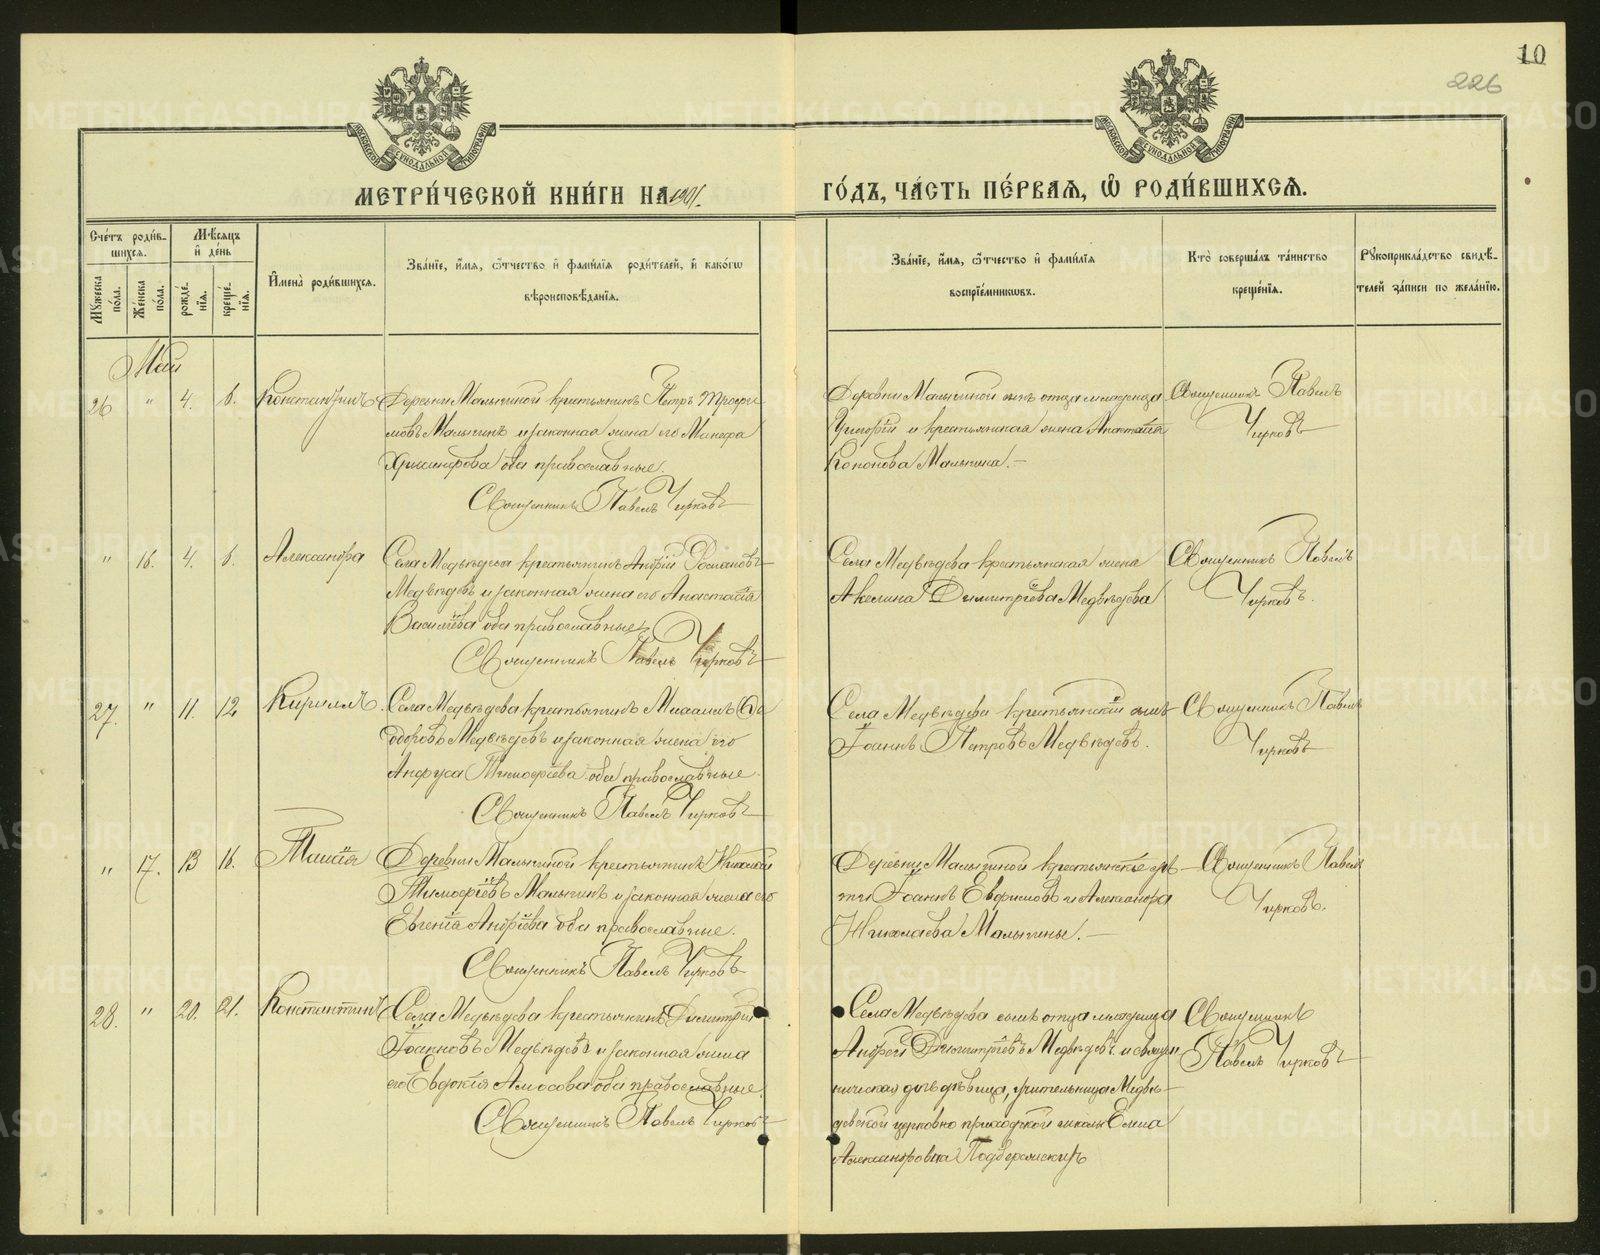 10
226
МОСКОВСКОЙ СѴНОДАЛЬНОЙ ТИПОГРАФІИ
МОСКОВСКОЙ СѴНОДАЛЬНОЙ ТИПОГРАФІИ
МЕТРИ́ЧЕСКОЙ КНИ́ГИ НА 1901. ГО́ДЪ, ЧА́СТЬ ПЕ́РВАѦ, Ѡ҆ РОДИ́ВШИХСѦ.
Сче́тъ роди́в-
шихся.
Мѣ́сяцъ
и҆ де́нь
Мꙋ́жеска
по́ла.
Же́нска
по́ла.
рожде́-
нїѧ.
креще́-
нїѧ.
И҆мена̀ роди́вшихся.
Зва́нїе, и҆́мя, ѻ҆́тчество и҆ фами́лїя роди́телей, и҆ како́гѡ
вѣроисповѣ́данїя.
Зва́нїе, и҆́мя, ѻ҆́тчество и҆ фами́лїя
воспрїе́мникѡвъ.
Кто̀ соверша́лъ та́инство
креще́нїя.
Рꙋкоприкла́дство свидѣ́-
телей за́писи по жела́нїю.
Май
26 " 4. 6. Константинъ Деревни Малыгиной крестьянинъ Петръ Трофи
мовъ Малыгинъ и законная жена его Минефа
Хрисанфова оба православные.
Священникъ Павелъ Чирковъ
Деревни Малыгиной сынъ отца младенца
Григорій и крестьянская жена Анастасія
Кононова Малыгина.—
Священникъ Павелъ
Чирковъ
" 16. 4. 6. Александра Села Медвѣдева крестьянинъ Андрей
Медвѣдевъ и законная жена его Анастасія
Василіева оба православные
Священникъ Павелъ Чирковъ
Села Медвѣдева крестьянская жена
Акелина Димитріева Медвѣдева
Священникъ Павелъ
Чирковъ.
27. " 11. 12 Кириллъ Села Медвѣдева крестьянинъ Мисаилъ Ѳе
одоровъ Медвѣдевъ и законная жена его
Анфуса Тимофіева оба православные
Священникъ Павелъ Чирковъ
Села Медвѣдева крестьянскій сынъ
Іоаннъ Петровъ Медвѣдевъ.
Священникъ Павелъ
Чирковъ
" 17. 13 16. Таисія Деревни Малыгиной крестьянинъ Николай
Тимофіевъ Малыгинъ и законная жена его
Евгенія Андріева оба православные.
Священникъ Павелъ Чирковъ
Деревни Малыгиной крестьянскіе дѣ-
ти Іоаннъ Евфимовъ и Александра
Николаева Малыгины.—
Священникъ Павелъ
Чирковъ.
28. " 20. 21. Константинъ Села Медвѣдева крестьянинъ Димитрій
Іоанновъ Медвѣдевъ и законная жена
его Евдокія Амосова оба православные.
Священникъ Павелъ Чирковъ
Села Медвѣдева сынъ отца младенца
Андрей Димитріевъ Медвѣдевъ и священ
ническая дочь дѣвица, учительница Медвѣ-
девской церковно приходской школы Елена
Александровна
Священникъ
Павелъ Чирковъ
METRIKI.GASO-URAL.RU